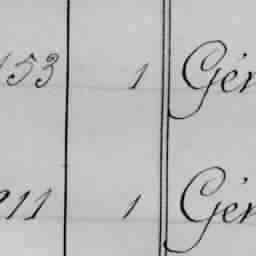 153 1 Gén
211 1 Gén